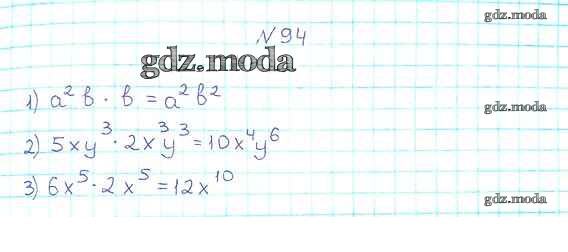 № 94
gdz.moda
gdz.moda
1) a² b · b = a² b²
gdz.moda
2) 5xy³ · 2x³y³ = 10x⁴y⁶
3) 6x⁵ · 2x⁵ = 12x¹⁰
gdz.moda